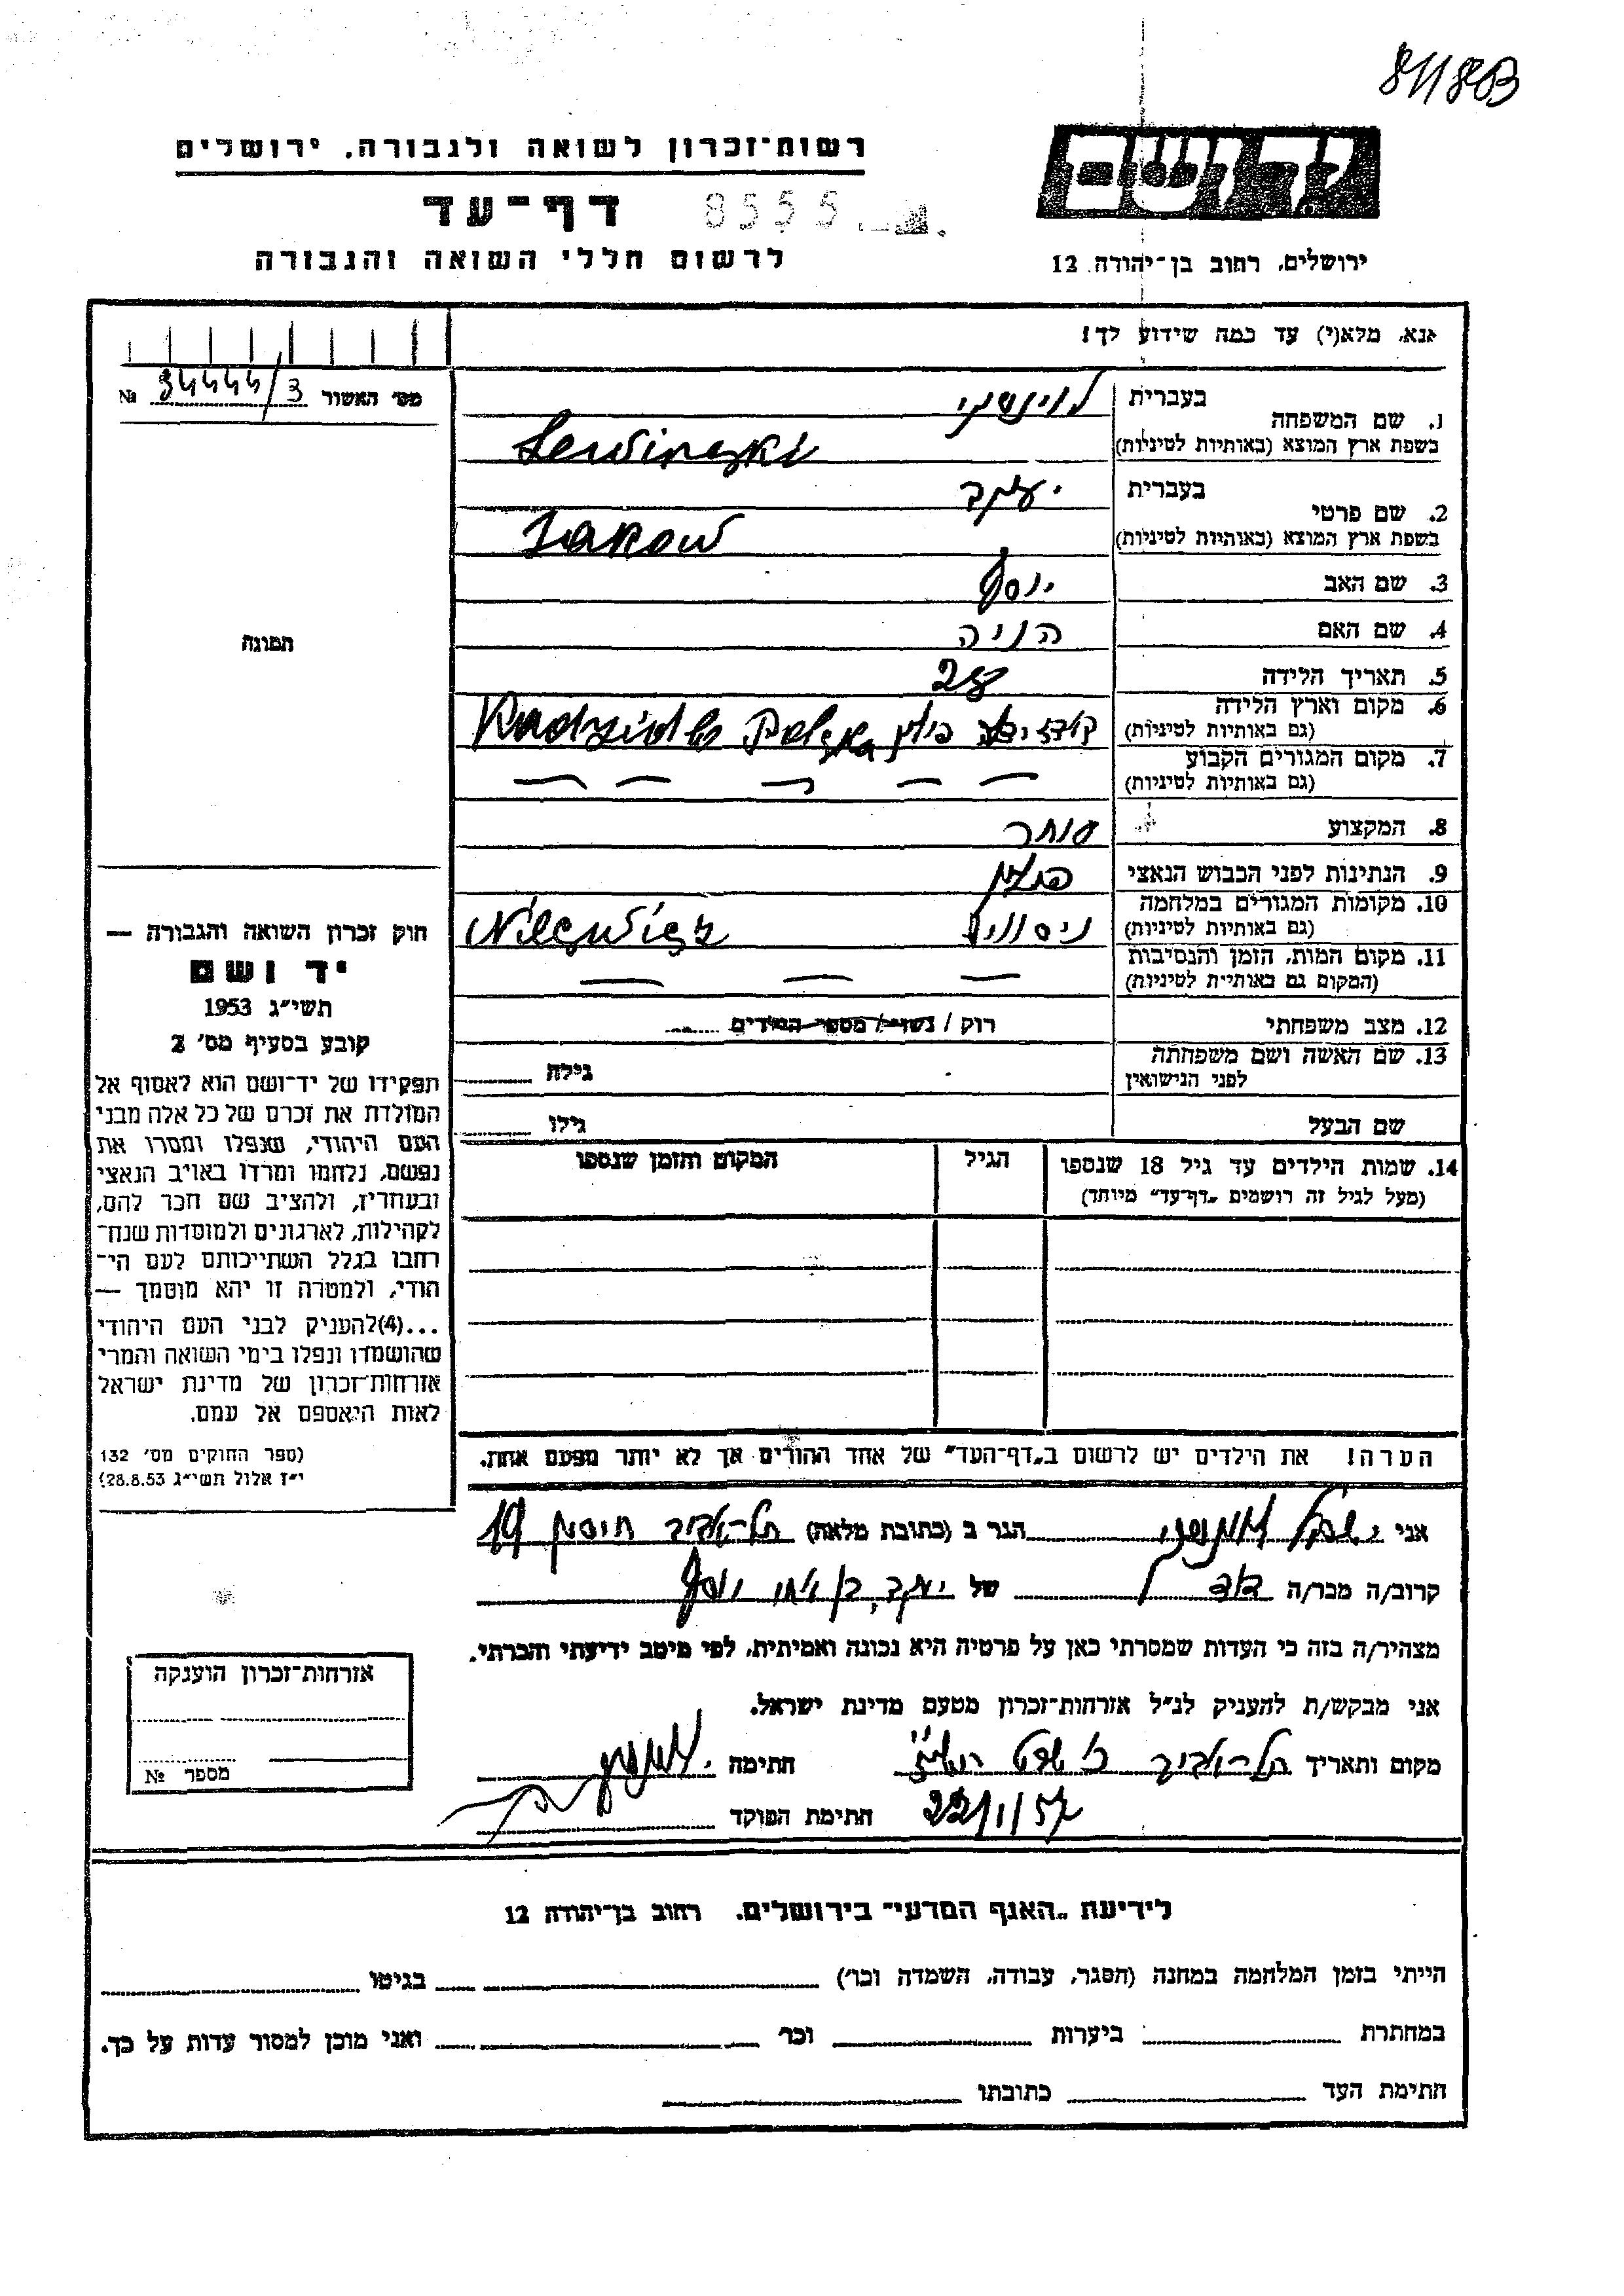 81180B
רשות־זכרון לשואה ולגבורה. ירושלים
יד ושם
דף־עד
8555
לרשום חללי השואה והגבורה
ירושלים, רחוב בן־יהודה 12
אנא, מלא(י) עד כמה שידוע לך!
מס׳ האשור 94444/3 №
1. שם המשפחה
בעברית לוינשקי
בשפת ארץ המוצא (באותיות לטיניות) Lewinski
2. שם פרטי
בעברית יעקב
בשפת ארץ המוצא (באותיות לטיניות) Jakow
3. שם האב יוסף
4. שם האם הניה
5. תאריך הלידה 28
6. מקום וארץ הלידה
(גם באותיות לטיניות) פולין Polska
7. מקום המגורים הקבוע
(גם באותיות לטיניות) — — — — —
8. המקצוע סוחר
9. הנתינות לפני הכבוש הנאצי פולין
10. מקומות המגורים במלחמה
(גם באותיות לטיניות)
11. מקום המות, הזמן והנסיבות
(המקום גם באותיות לטיניות) — — —
12. מצב משפחתי רוק / נשוי / מספר הילדים
13. שם האשה ושם משפחתה
לפני הנישואין
גילה
שם הבעל גילו
14. שמות הילדים עד גיל 18 שנספו
(מעל לגיל זה רושמים „דף־עד״ מיוחד)
הגיל
המקום והזמן שנספו
הערה! את הילדים יש לרשום ב„דף־העד״ של אחד ההורים אך לא יותר מפעם אחת.
תמונה
חוק זכרון השואה והגבורה —
יד ושם
תשי״ג 1953
קובע בסעיף מס׳ 2
תפקידו של יד־ושם הוא לאסוף אל
המולדת את זכרם של כל אלה מבני
העם היהודי, שנפלו ומסרו את
נפשם, נלחמו ומרדו באויב הנאצי
ובעוזריו, ולהציב שם וזכר להם,
לקהילות, לארגונים ולמוסדות שנח־
רבו בגלל השתייכותם לעם הי־
הודי, ולמטרה זו יהא מוסמך —
...(4)להעניק לבני העם היהודי
שהושמדו ונפלו בימי השואה והמרי
אזרחות־זכרון של מדינת ישראל
לאות היאספם אל עמם.
(ספר החוקים מס׳ 132
י״ז אלול תשי״ג 28.8.53)
אני הגר ב (כתובת מלאה) תל־אביב 19
קרוב/ה מכר/ה דוד של יעקב, בן יוסף
מצהיר/ה בזה כי העדות שמסרתי כאן על פרטיה היא נכונה ואמיתית, לפי מיטב ידיעתי והכרתי.
אני מבקש/ת להעניק לנ״ל אזרחות־זכרון מטעם מדינת ישראל.
מקום ותאריך תל־אביב כ׳ שבט תשי״ז חתימה
22/1/57 חתימת הפוקד
אזרחות־זכרון הוענקה
מספר №
לידיעת „האגף המדעי״ בירושלים. רחוב בן־יהודה 12
הייתי בזמן המלחמה במחנה (הסגר, עבודה, השמדה וכו׳) בגיטו
במחתרת ביערות וכו׳ ואני מוכן למסור עדות על כך.
חתימת העד כתובתו